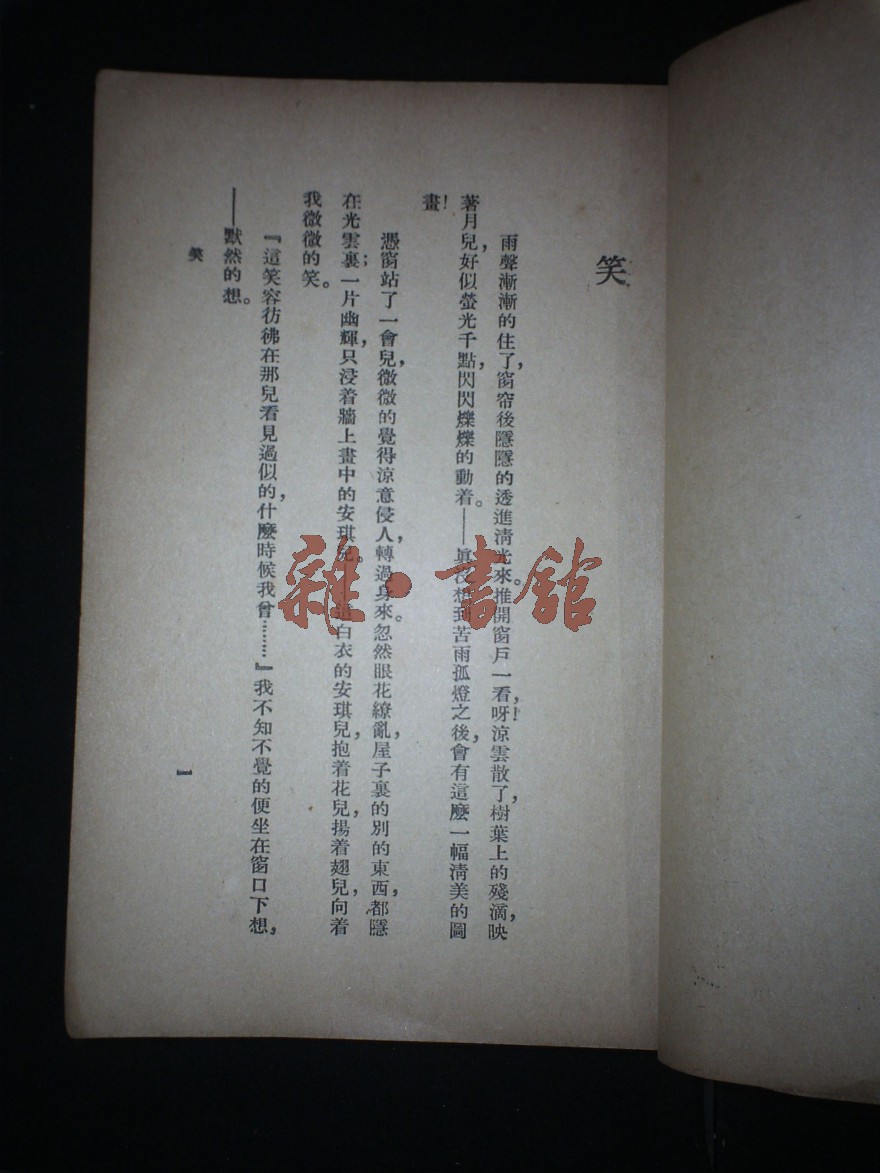 笑
雨聲漸漸的住了，窗帘後隱隱的透進淸光來。推開窗戶一看，呀！涼雲散了，樹葉上的殘滴，映
著月兒，好似螢光千點，閃閃爍爍的動着。——眞沒想到苦雨孤燈之後，會有這麼一幅淸美的圖
畫！
憑窗站了一會兒，微微的覺得涼意侵人。轉過身來，忽然眼花繚亂，屋子裏的別的東西，都隱
在光雲裏；一片幽輝，只浸着牆上畫中的安琪兒。——這白衣的安琪兒，抱着花兒，揚着翅兒，向着
我微微的笑。
『這笑容彷彿在那兒看見過似的，什麼時候，我曾………』我不知不覺的便坐在窗口下想，
——默然的想。
笑
一
雜·書館